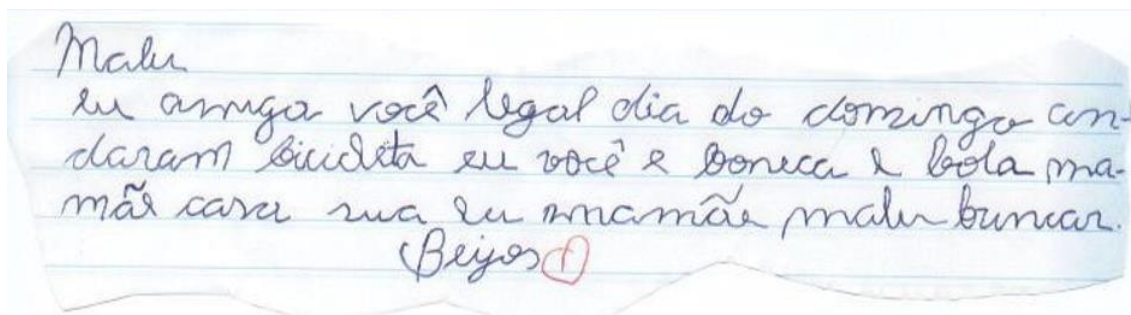 Malu
eu amiga você legal dia do domingo an-
daram bicicleta eu você e boneca e bola ma-
mãe casa sua eu mamãe malu brincar.
Beijos